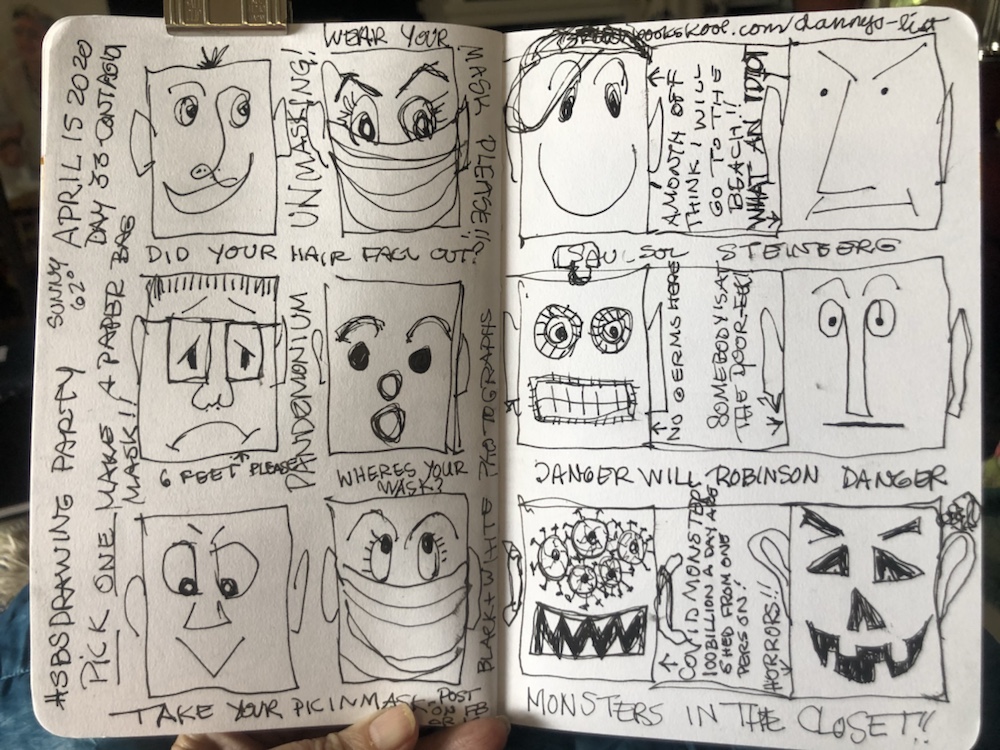 #SBSDRAWING PARTY SUNNY APRIL 15 2020
62° DAY 33 CONTAGION
PICK ONE MAKE A PAPER BAG
MASK!!
UNMASKING!
WEAR YOUR
MASK PLEASE!!
DID YOUR HAIR FALL OUT?
PANDEMONIUM
6 FEET PLEASE
WHERES YOUR
MASK?
BLACK + WHITE PHOTOGRAPHS
TAKE YOUR PIC IN MASK POST
ON FB
OR
sketchbookskool.com/dannys-list
A MONTH OFF
THINK I WILL
GO TO THE
BEACH!!
WHAT AN IDIOT
SAUL SOL STEINBERG
NO GERMS HERE
SOMEBODYS AT
THE DOOR-EEK!
DANGER WILL ROBINSON DANGER
COVID MONSTER
100 BILLION A DAY ARE
SHED FROM ONE
PERSON!
HORRORS!!
MONSTERS IN THE CLOSET!!